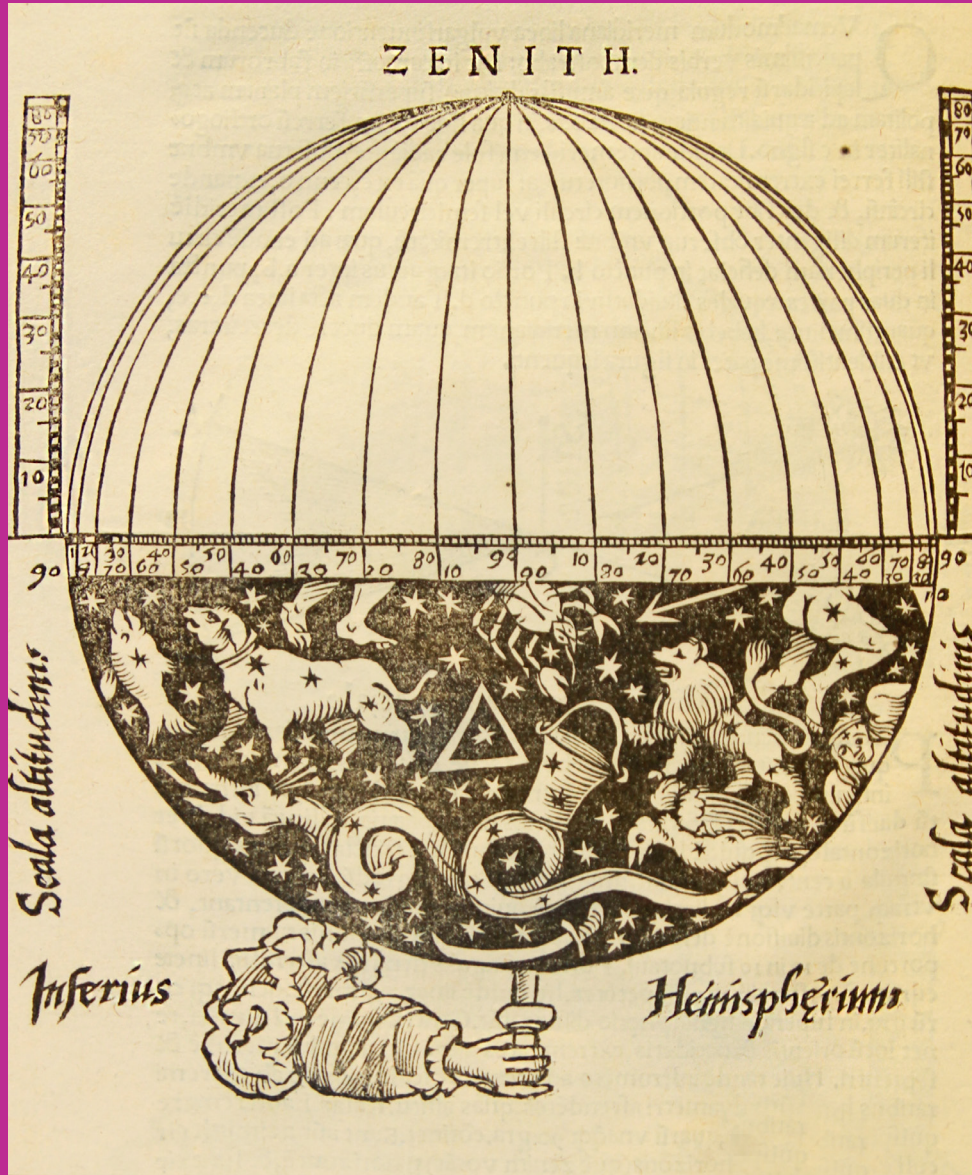 ZENITH.
80 80
70 70
60 60
50 50
40 40
30 30
20 20
10 10
90 10 20 30 40 50 60 70 80 90 10 20 30 40 50 60 70 80 90
80 70 60 50 40 30 20 10 90 80 70 60 50 40 30 20 10
Scala altitudinis
Scala altitudinis
Inferius Hemisphęrium